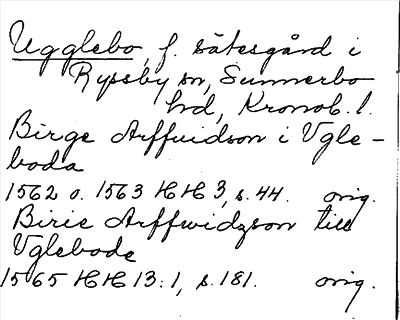 Ugglebo, f. sätesgård i
Ryssby sn, Sunnerbo
hrd, Kronob. l.
Birge Arffuidson i Vgle-
boda
1562 o. 1563 HH 3, s. 44. orig.
Birie Arffwidzson till
Vglebode
1565 HH 13:1, s. 181. orig.